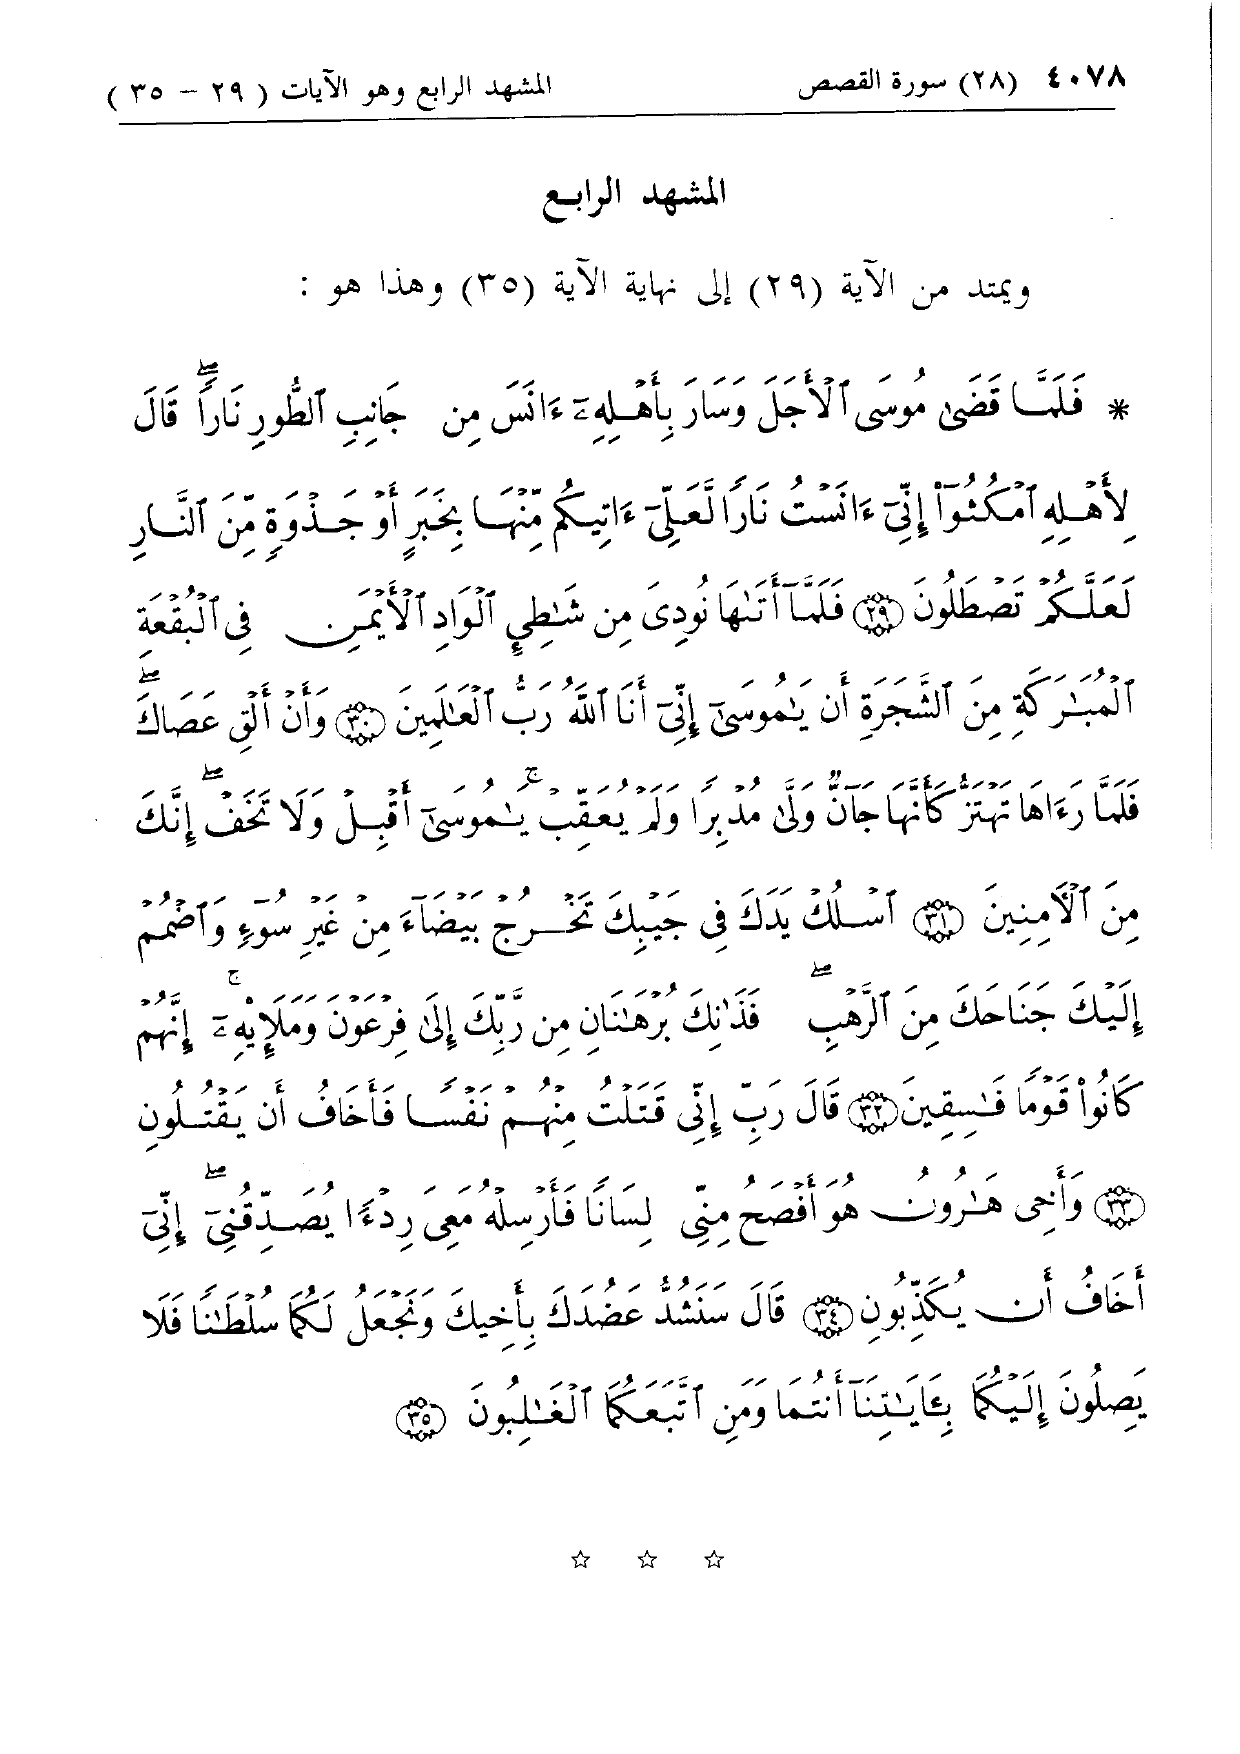 ٤٠٧٨ (٢٨) سورة القصص المشهد الرابع وهو الآيات ( ٢٩ – ٣٥ )
المشهد الرابع
ويمتد من الآية (٢٩) إلى نهاية الآية (٣٥) وهذا هو :
* فَلَمَّا قَضَىٰ مُوسَى ٱلْأَجَلَ وَسَارَ بِأَهْلِهِۦٓ ءَانَسَ مِن جَانِبِ ٱلطُّورِ نَارًاۖ قَالَ
لِأَهْلِهِ ٱمْكُثُوٓا۟ إِنِّىٓ ءَانَسْتُ نَارًا لَّعَلِّىٓ ءَاتِيكُم مِّنْهَا بِخَبَرٍ أَوْ جَذْوَةٍ مِّنَ ٱلنَّارِ
لَعَلَّكُمْ تَصْطَلُونَ ٢٩ فَلَمَّآ أَتَىٰهَا نُودِىَ مِن شَٰطِئِ ٱلْوَادِ ٱلْأَيْمَنِ فِى ٱلْبُقْعَةِ
ٱلْمُبَٰرَكَةِ مِنَ ٱلشَّجَرَةِ أَن يَٰمُوسَىٰٓ إِنِّىٓ أَنَا ٱللَّهُ رَبُّ ٱلْعَٰلَمِينَ ٣٠ وَأَنْ أَلْقِ عَصَاكَۖ
فَلَمَّا رَءَاهَا تَهْتَزُّ كَأَنَّهَا جَآنٌّ وَلَّىٰ مُدْبِرًا وَلَمْ يُعَقِّبْۚ يَٰمُوسَىٰٓ أَقْبِلْ وَلَا تَخَفْۖ إِنَّكَ
مِنَ ٱلْءَامِنِينَ ٣١ ٱسْلُكْ يَدَكَ فِى جَيْبِكَ تَخْرُجْ بَيْضَآءَ مِنْ غَيْرِ سُوٓءٍ وَٱضْمُمْ
إِلَيْكَ جَنَاحَكَ مِنَ ٱلرَّهْبِۖ فَذَٰنِكَ بُرْهَٰنَانِ مِن رَّبِّكَ إِلَىٰ فِرْعَوْنَ وَمَلَإِي۟هِۦٓۚ إِنَّهُمْ
كَانُوا۟ قَوْمًا فَٰسِقِينَ ٣٢ قَالَ رَبِّ إِنِّى قَتَلْتُ مِنْهُمْ نَفْسًا فَأَخَافُ أَن يَقْتُلُونِ
٣٣ وَأَخِى هَٰرُونُ هُوَ أَفْصَحُ مِنِّى لِسَانًا فَأَرْسِلْهُ مَعِىَ رِدْءًا يُصَدِّقُنِىٓۖ إِنِّىٓ
أَخَافُ أَن يُكَذِّبُونِ ٣٤ قَالَ سَنَشُدُّ عَضُدَكَ بِأَخِيكَ وَنَجْعَلُ لَكُمَا سُلْطَٰنًا فَلَا
يَصِلُونَ إِلَيْكُمَا بِـَٔايَٰتِنَآ أَنتُمَا وَمَنِ ٱتَّبَعَكُمَا ٱلْغَٰلِبُونَ ٣٥
☆ ☆ ☆